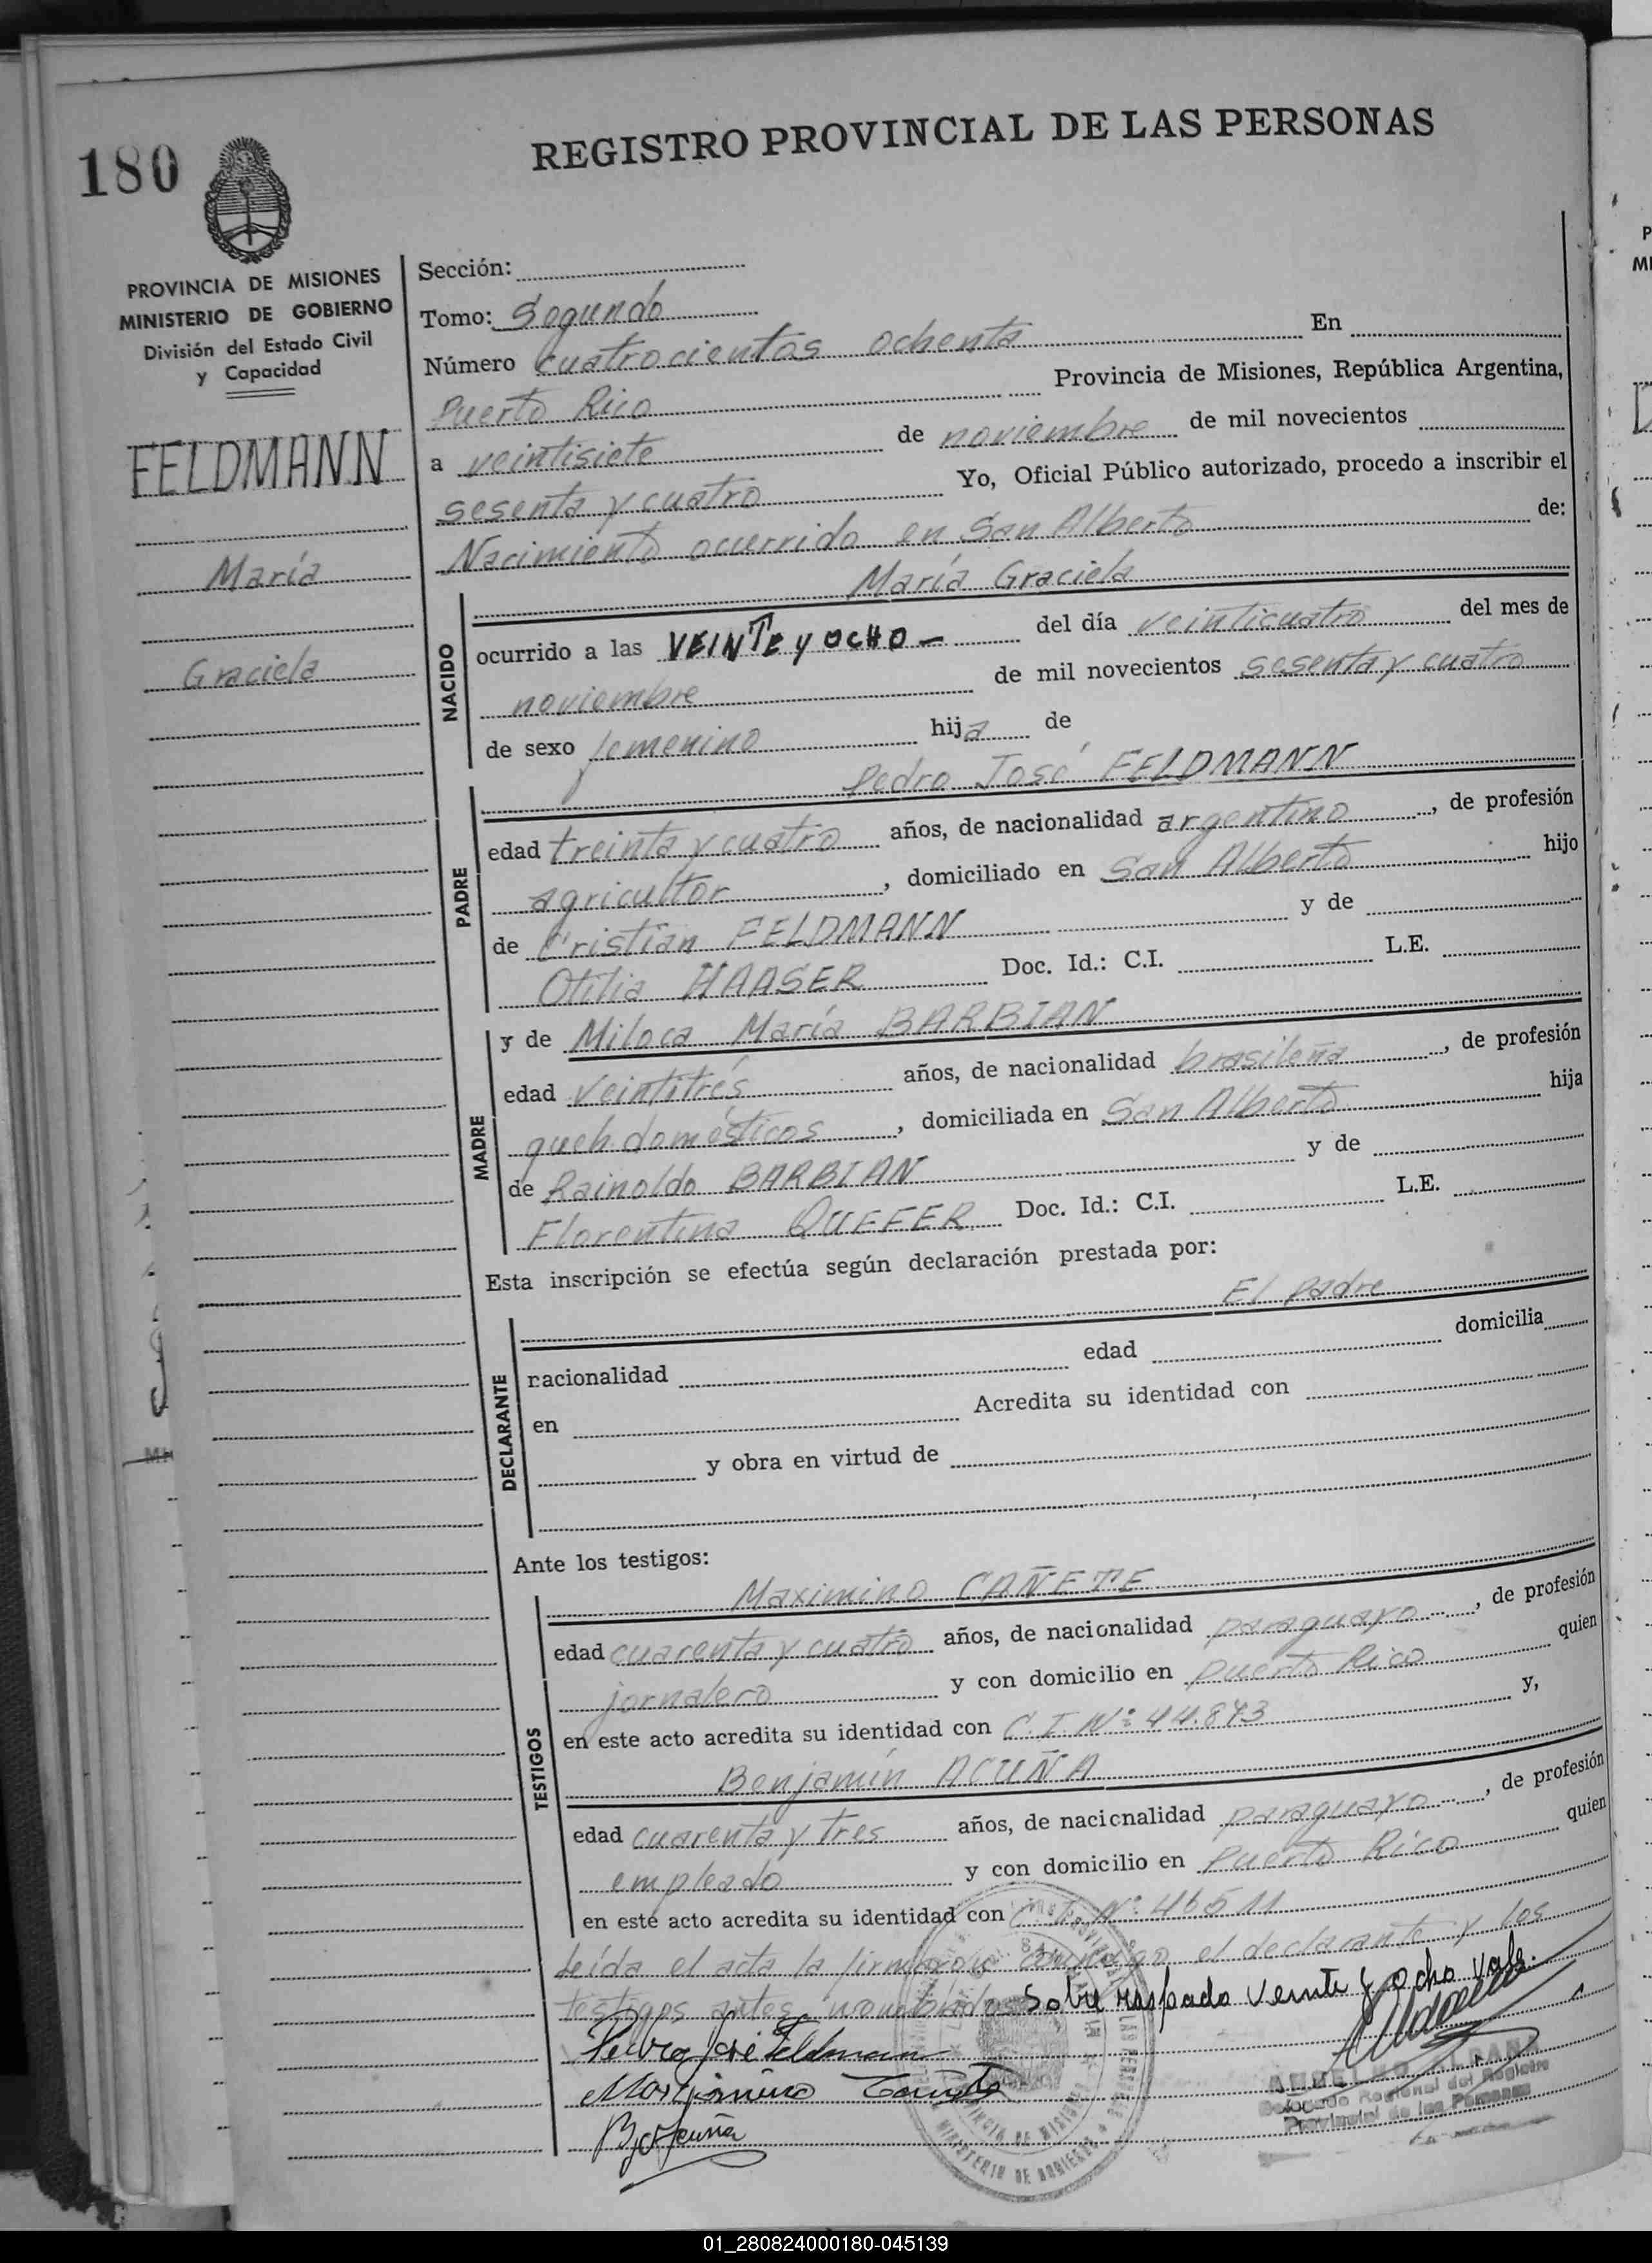 180
REGISTRO PROVINCIAL DE LAS PERSONAS
PROVINCIA DE MISIONES
MINISTERIO DE GOBIERNO
División del Estado Civil
y Capacidad
FELDMANN
María
Graciela
Sección:
Tomo: Segundo
Número cuatrocientos ochenta En
Puerto Rico Provincia de Misiones, República Argentina,
a veintisiete de noviembre de mil novecientos
sesenta y cuatro Yo, Oficial Público autorizado, procedo a inscribir el
Nacimiento ocurrido en San Alberto de:
María Graciela
NACIDO
ocurrido a las VEINTE y OCHO — del día veinticuatro del mes de
noviembre de mil novecientos sesenta y cuatro
de sexo femenino hija de
Pedro José FELDMANN
PADRE
edad treinta y cuatro años, de nacionalidad argentino, de profesión
agricultor, domiciliado en San Alberto hijo
de Cristian FELDMANN y de
Otilia HAASER Doc. Id.: C.I. L.E.
y de Miloca María BARBIAN
MADRE
edad veintitrés años, de nacionalidad brasileña, de profesión
queh. domésticos, domiciliada en San Alberto hija
de Rainoldo BARBIAN y de
Florentina QUEFER Doc. Id.: C.I. L.E.
Esta inscripción se efectúa según declaración prestada por:
El padre
DECLARANTE
nacionalidad edad domicilia
en Acredita su identidad con
y obra en virtud de
Ante los testigos:
Maximino CAÑETE
TESTIGOS
edad cuarenta y cuatro años, de nacionalidad paraguayo, de profesión
jornalero y con domicilio en Puerto Rico quien
en este acto acredita su identidad con C.I. Nº 44.873 y,
Benjamín ACUÑA
edad cuarenta y tres años, de nacionalidad paraguayo, de profesión
empleado y con domicilio en Puerto Rico quien
en este acto acredita su identidad con Nº 46511
Leída el acta la firman conmigo el declarante y los
testigos antes nombrados Sobre raspado veinte y ocho vale.
Pedro José Feldmann
Maximino Cañete
B. Acuña
Delegado Regional del Registro
Provincial de las Personas
01_280824000180-045139